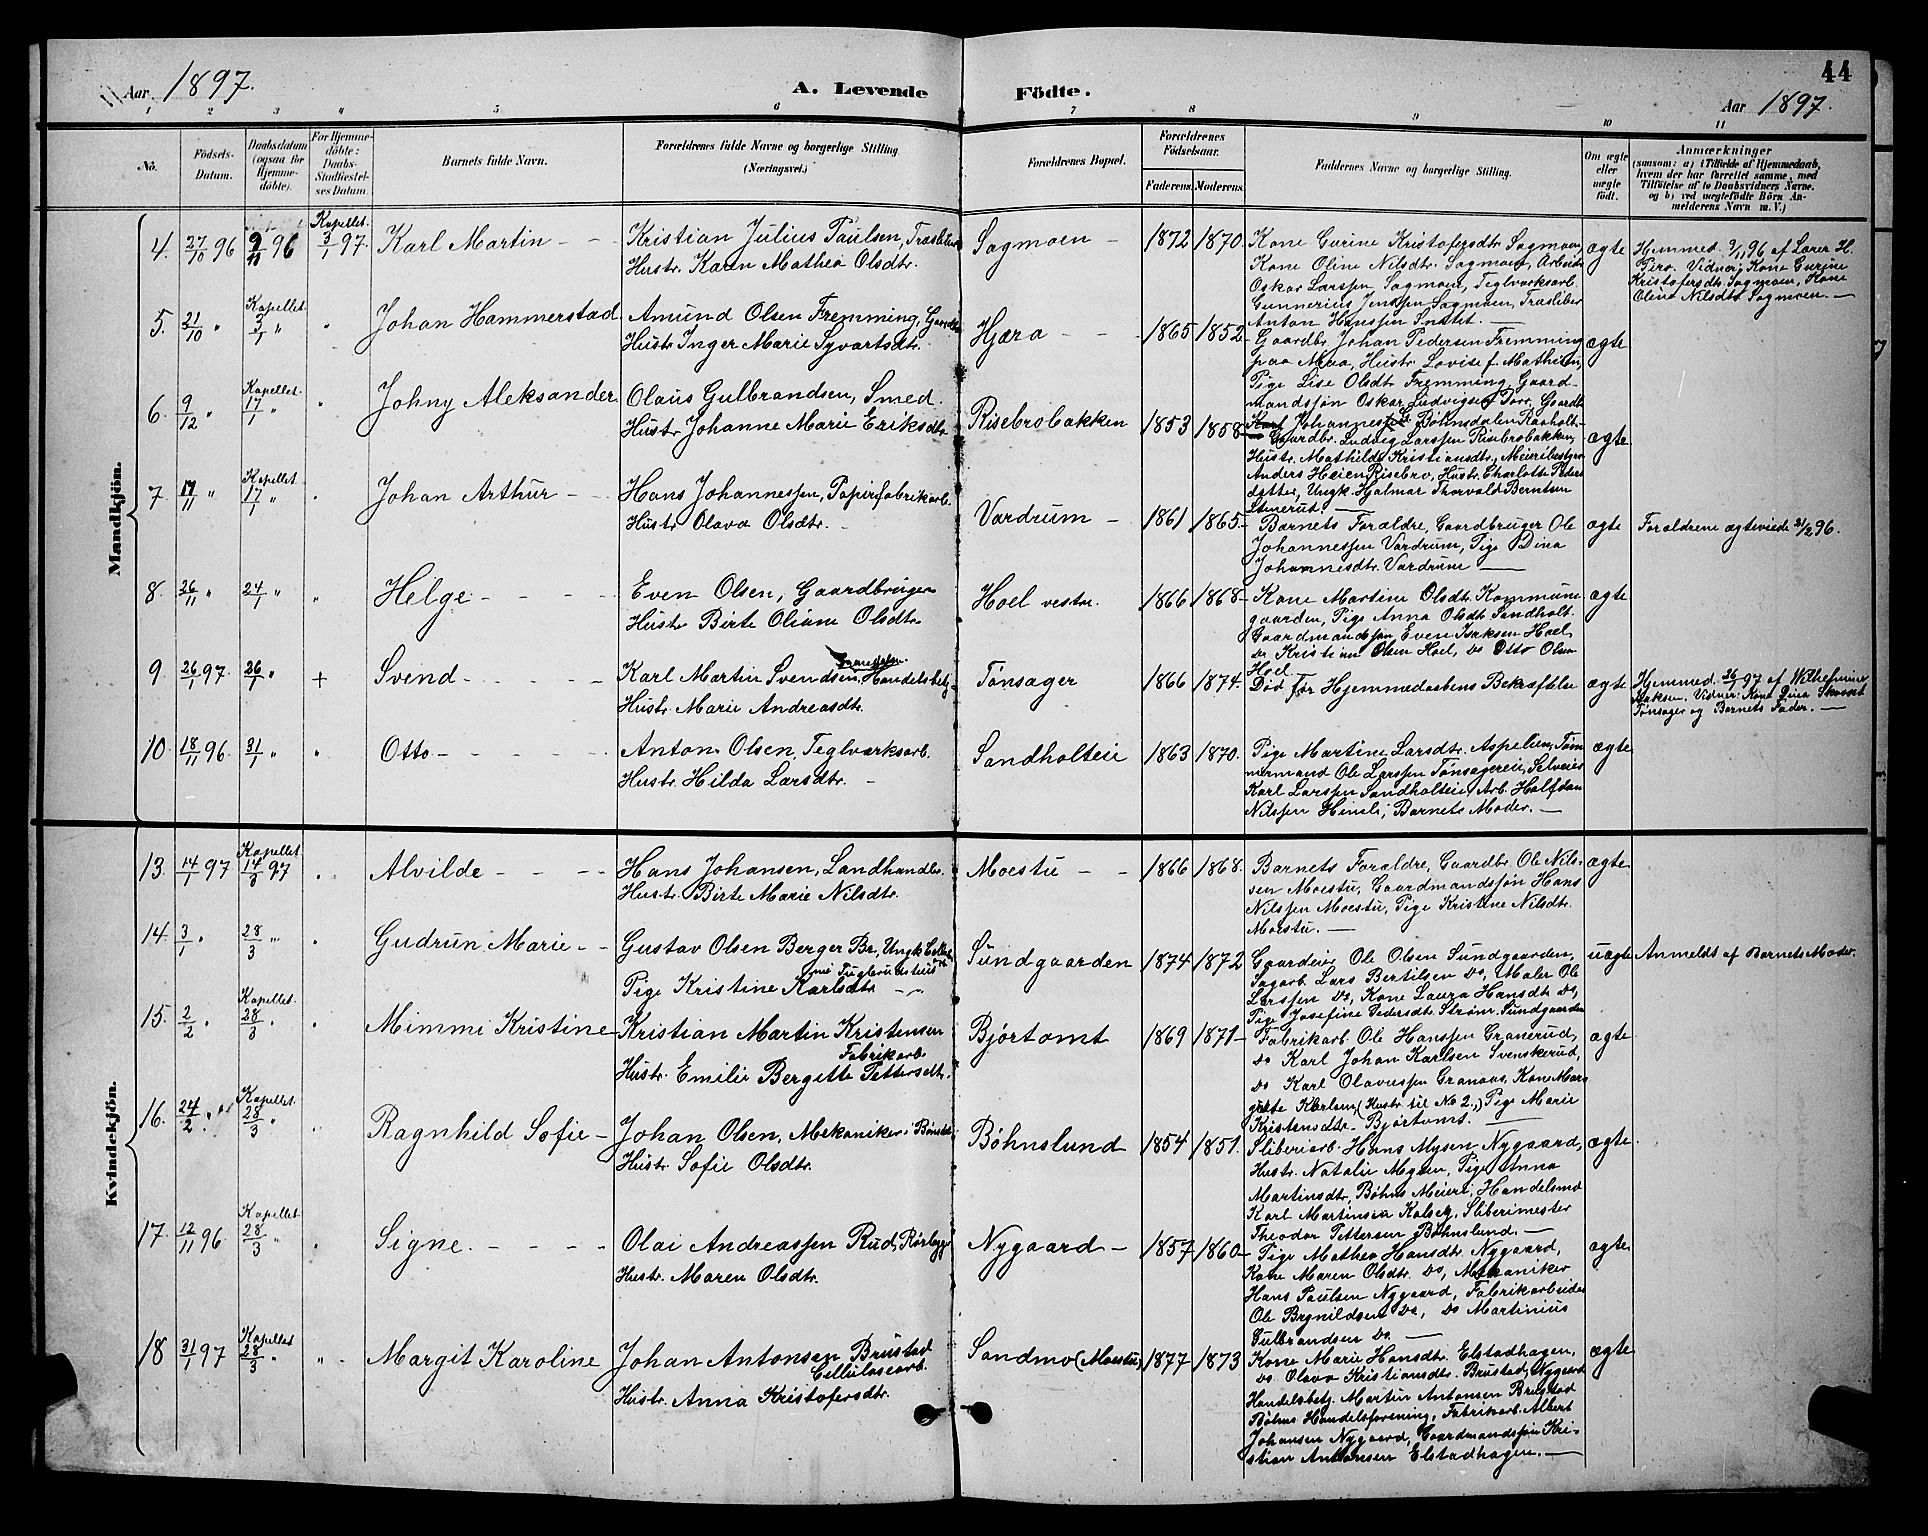 44
Aar 1897.
A. Levende Födte.
Aar 1897.
1 2 3 4 5 6 7 8 9 10 11
No.
Födsels-Datum.
Daabsdatum (ogsaa for Hjemmedöbte).
For Hjemmedöbte: Daabs-Stadfæstelses Datum.
Barnets fulde Navn.
Forældrenes fulde Navne og borgerlige Stilling (Næringsvei.)
Forældrenes Bopæl.
Forældrenes Födselsaar.
Faderens. Moderens.
Faddernes Navne og borgerlige Stilling.
Om ægte eller uægte födt.
Anmærkninger
(saasom: a) i Tilfælde af Hjemmedaab, hvem der har forrettet samme, med Tilföielse af to Daabsvidners Navne, og b) ved uægtefödte Börn Anmelderens Navn m. V.)
Mandkjön.
4. 27/10 96 9/11 96 Kapellet 3/1 97 Karl Martin
Kristian Julius Paulsen,
Hustr. Karen Mathea Olsdtr.
Sagmoen - 1872 1870
Kone Gurine Kristofersdtr. Sagmoen,
Kone Oline Nilsdtr. Sagmoen, Arbeid.
Oskar Larssen Sagmoen, Teglværksarb.
Gunnerius Jenssen Sagmoen, Træsliber
Anton Hanssen
ægte
Hjemmed. 9/11 96 af Lærer H.
Piro. Vidner: Kone Gurine
Kristofersdtr. Sagmoen, Kone
Oline Nilsdtr. Sagmoen. —
5. 21/10 " Kapellet 3/1 " " Johan Hammerstad
Amund Olsen Fremming, Gaardbr.
Hustr. Inger Marie Syvertsdtr.
Hjæra - 1865 1852
Gaardbr. Johan Pedersen Fremming
paa Moa, Hustr. Lovise f. Mathisen,
Pige Lise Olsdtr. Fremming, Gaard-
mandssön Oskar Ludvigsen
ægte
6. 9/12 " Kapellet 17/1 " " Johny Aleksander
Olaus Gulbrandsen, Smed.
Hustr. Johanne Marie Eriksdtr.
Risebrobakken 1853 1858
Johannessen Böhnsdalen Raaholt
Gaardbr. Ludvig Larssen Risebrobakken,
Hustr. Mathilde Kristiansdtr., Meieribestyrer
Anders Heien Risebro, Hustr. Charlotte Peders
datter, Ungk. Hjalmar Thorvald Berntsen
Stenerud. —
ægte
7 17/11 " Kapellet 17/1 " " Johan Arthur - -
Hans Johannessen, Papirfabrikarb.
Hustr. Olava Olsdtr. -
Vardrum - 1861 1865 -
Barnets Forældre, Gaardbruger Ole
Johannessen Vardrum, Pige Dina
Johannesdtr. Vardrum —
ægte
Forældrene ægteviede 21/2 96.
8. 26/11 " 24/1 " " Helge - - - -
Even Olsen, Gaardbruger
Hustr. Birte Oliane Olsdtr.
Hoel vestre. 1866 1868 -
Kone Martine Olsdtr. Kommune
gaarden, Pige Anna Olsdtr. Sandholt.
Gaardmandssön Even Isaksen Hoel,
Do Kristian Olsen Hoel, Do Otto Olsen
Hoel.
ægte
9. 26/1 97. 26/1 " + Svend - - - -
Karl Martin Svendsen, Handelsbetj.
Hustr. Marie Andreasdtr.
Tönsager 1866 1874.
Död för Hjemmedaabens Bekræftelse
ægte
Hjemmed. 26/1 97 af Wilhelmine
Isaksen. Vidner: Kone Dina
Tönsager og Barnets Fader. —
10. 18/11 96. 31/1 " " Otto - - - - -
Anton Olsen, Teglværksarb.
Hustr. Hilda Larsdtr. -
Sandholteie 1863 1870.
Pige Martine Larsdtr. Aspelien, Töm
mermand Ole Larssen Tönsagereie, Selveier
Karl Larssen Sandholteie, Arb. Halfdan
Nilssen Himle, Barnets Moder. —
ægte
Kvindekjön.
13. 14/1 97 Kapellet 14/3 97 " Alvilde - - - -
Hans Johansen, Landhandler.
Hustr. Birte Marie Nilsdtr.
Moestu - - 1866 1868.
Barnets Forældre, Gaardbr. Ole Nils-
sen Moestu, Gaardmandssön Hans
Nilssen Moestu, Pige Kristine Nilsdtr.
Moestu. —
ægte
14. 3/1 " 28/3 " " Gudrun Marie - -
Gustav Olsen Berger Br., Ungk.
Pige Kristine Karlsdtr.
Sundgaarden 1874 1872
Gaardeier Ole Olsen Sundgaarden,
Sagarb. Lars Bertilsen Do, Maler Ole
Larssen Do, Kone Laura Hansdtr. Do,
Pige Josefine Pedersdtr. Ström Sundgaarden
uægte Anmeldt af Barnets Moder.
15. 2/2 " Kapellet 28/3 " " Mimmi Kristine
Kristian Martin Kristensen
Fabrikarb.
Hustr. Emilie Bergitte Pettersdtr.
Björtomt 1869 1871 -
Fabrikarb. Ole Hanssen Granerud,
Do Karl Johan Karlsen Svenskerud,
Do Karl Olavessen Granaas, Kone Mar-
grete Karlsen (Hustr. til No 2,) Pige Marie
Kristensdtr. Björtomt. —
ægte
16. 24/2 " Kapellet 28/3 " Ragnhild Sofie -
Johan Olsen, Mekaniker
Hustr. Sofie Olsdtr.
Böhnslund 1854 1851.
Sliberiarb. Hans Mysen Nygaard,
Hustr. Natalie Mysen, Pige Anna
Martinsdtr. Böhns Meieri, Handelsmd
Karl Martinsen Kolseg, Sliberimester
Theodor Pettersen Böhnslund. —
ægte
17. 12/11 96. Kapellet 28/3 " " Signe. - - - -
Olai Andreassen Rud,
Hustr. Maren Olsdtr.
Nygaard - 1857 1860 -
Pige Mathea Hansdtr. Nygaard,
Kone Maren Olsdtr. Do, Mekaniker
Hans Paulsen Nygaard, Fabrikarbeider
Ole Brynildsen Do, Do Martinius
Gulbrandsen Do. —
ægte
18 31/1 97 Kapellet 28/3 " " Margit Karoline
Johan Antonsen Brustad
Cellulosearb.
Hustr. Anna Kristofersdtr.
Sandmo (Moestu) 1877 1873
Kone Marie Hansdtr. Elstadhagen,
Do. Olava Kristiansdtr. Brustad, Nygaard
Handelsbetj. Martin Antonsen Brustad
Böhns Handelsforening, Fabrikarb. Albert
Johansen Nygaard, Gaardmandssön Kri-
stian Antonsen Elstadhagen. —
ægte